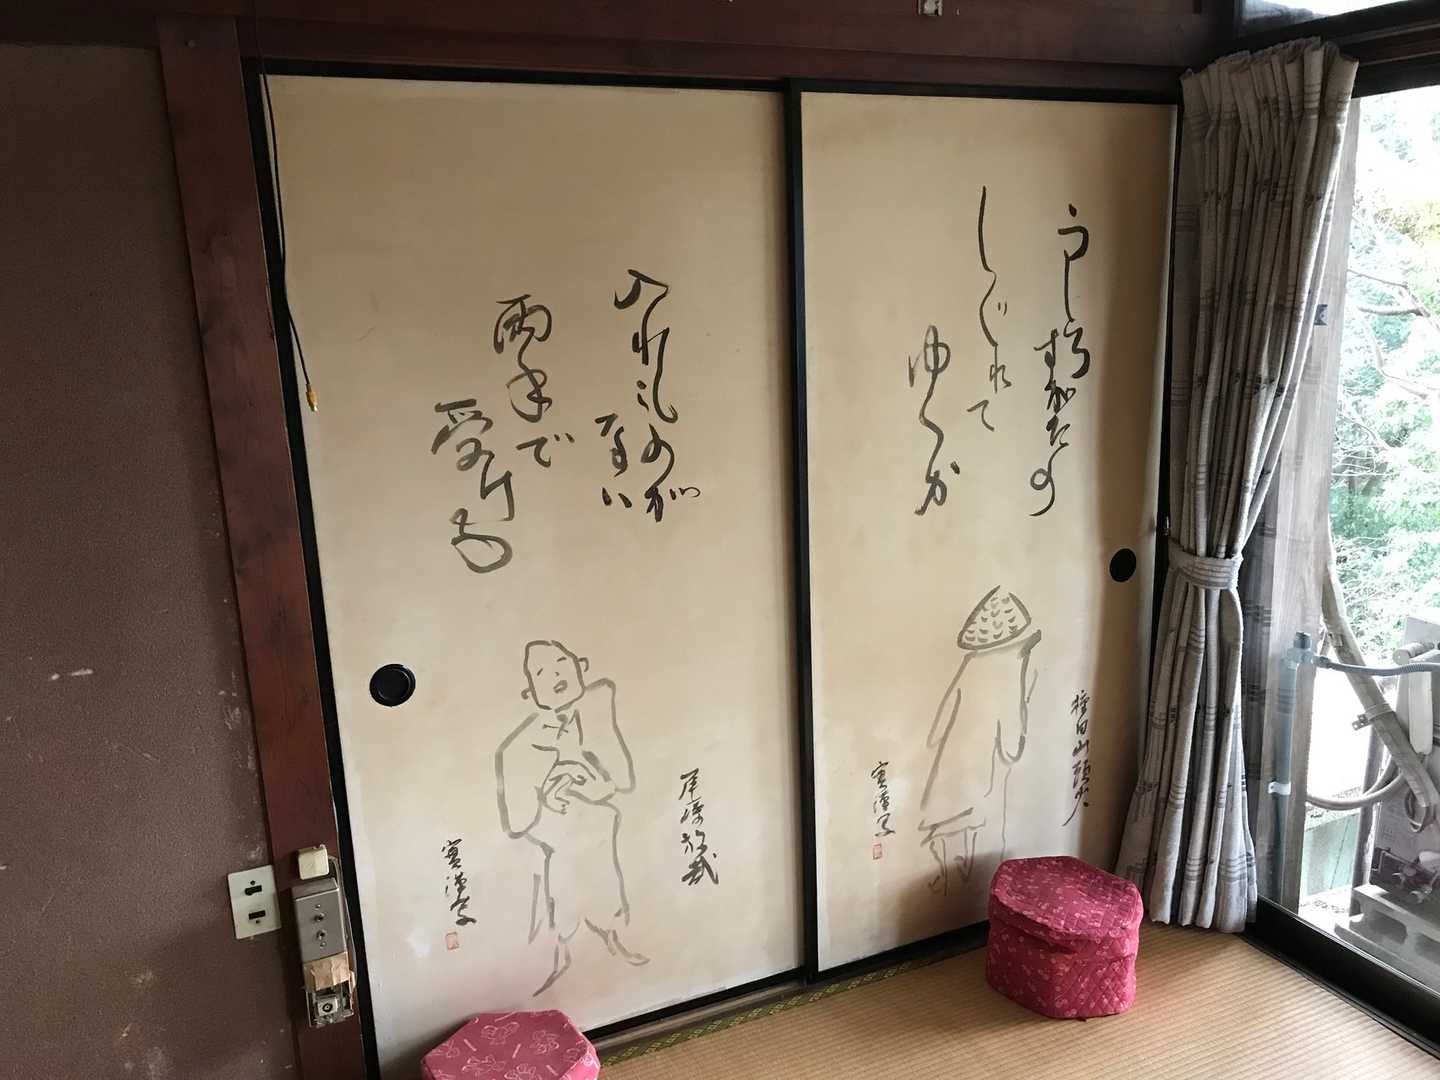 うしろ
すがたの
しぐれて
ゆくか
種田山頭火
入れものが
ない
両手で
受ける
尾崎放哉